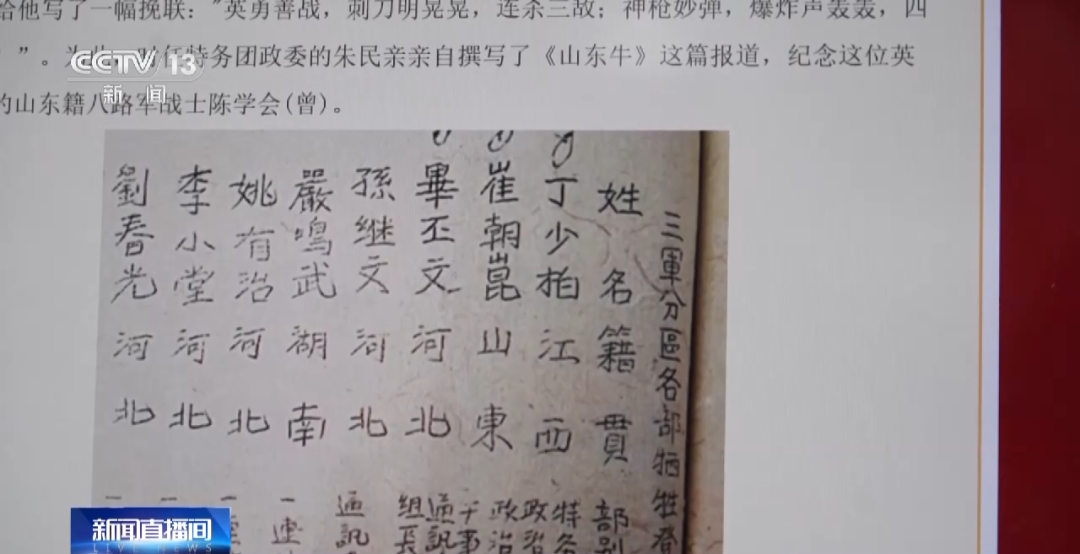 给他写了一幅挽联："英勇善战，刺刀明晃晃，连杀三敌；神枪妙弹，爆炸声轰轰，四
”。为此，时任特务团政委的朱民亲亲自撰写了《山东牛》这篇报道，纪念这位英
的山东籍八路军战士陈学会(曾)。
CCTV 13
新闻
三軍分區各部牺牲
姓名籍貫 部别
丁少柏江西 特务 政治
崔朝崑山東 政治 干事
畢丕文河北 通訊 組長
孫继文河北 通訊
嚴鳴武湖南 一連
姚有治河北 一
李小堂河北 一
劉春光河北 一
新闻直播间
LIVE NEWS